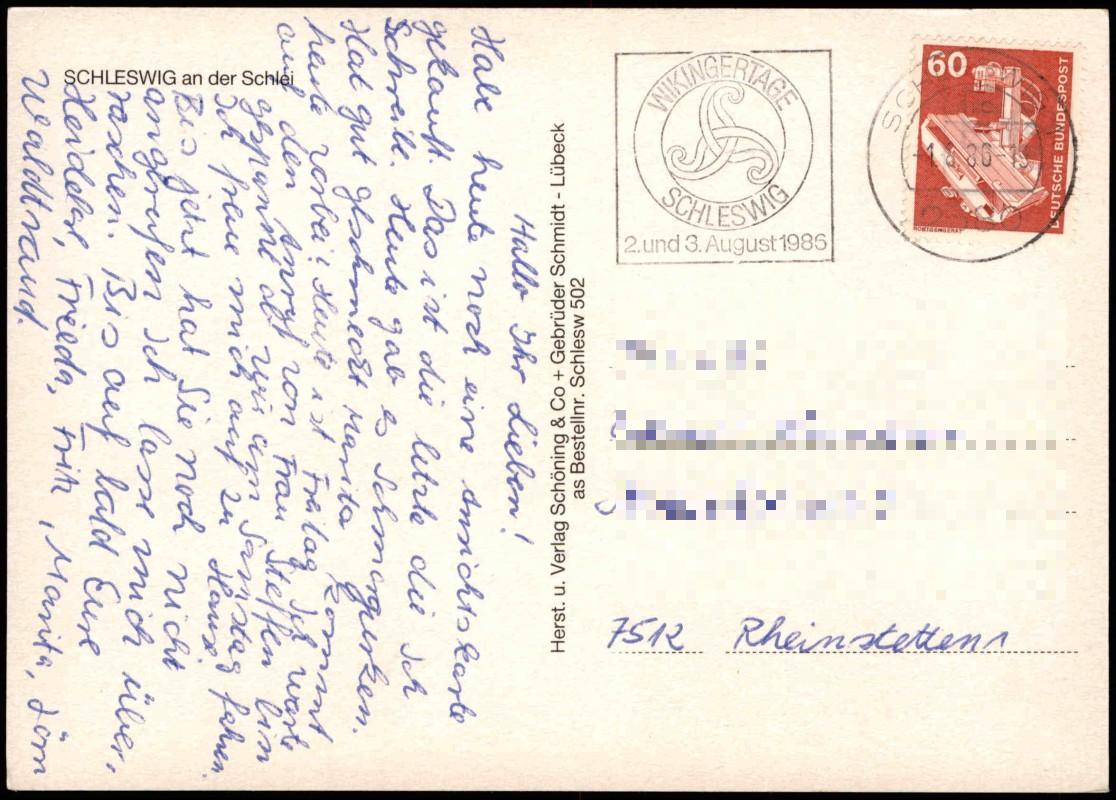 SCHLESWIG an der Schlei
Hallo Ihr Lieben!
Habe heute noch eine Ansichtskarte
gekauft. Das ist die letzte die ich
Schreibe. Heute gab es Schmorgurken.
Hat gut geschmeckt Marita kommt
heute vorbei. Heute ist Freitag Ich warte
auf den Anruf von Frau Steffen bin
gespannt ob wir am Samstag fahren
Ich freue mich auf zu Hause
Bis jetzt hat Sie noch nicht
angerufen Ich lasse mich über-
raschen. Bis auf bald Eure
Heidekr, Frieda, Fritz, Marita, Jörn
Waldtraud.
Herst. u. Verlag Schöning & Co + Gebrüder Schmidt - Lübeck
as Bestellnr. Schlesw 502
WIKINGERTAGE
SCHLESWIG
2. und 3. August 1986
60
DEUTSCHE BUNDESPOST
RÖNTGENGERÄT
7512 Rheinstetten 1